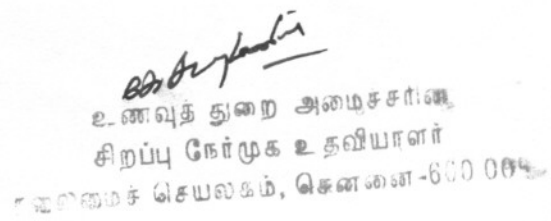 உணவுத் துறை அமைச்சரின்
சிறப்பு நேர்முக உதவியாளர்
தலைமைச் செயலகம், சென்னை-600 009.